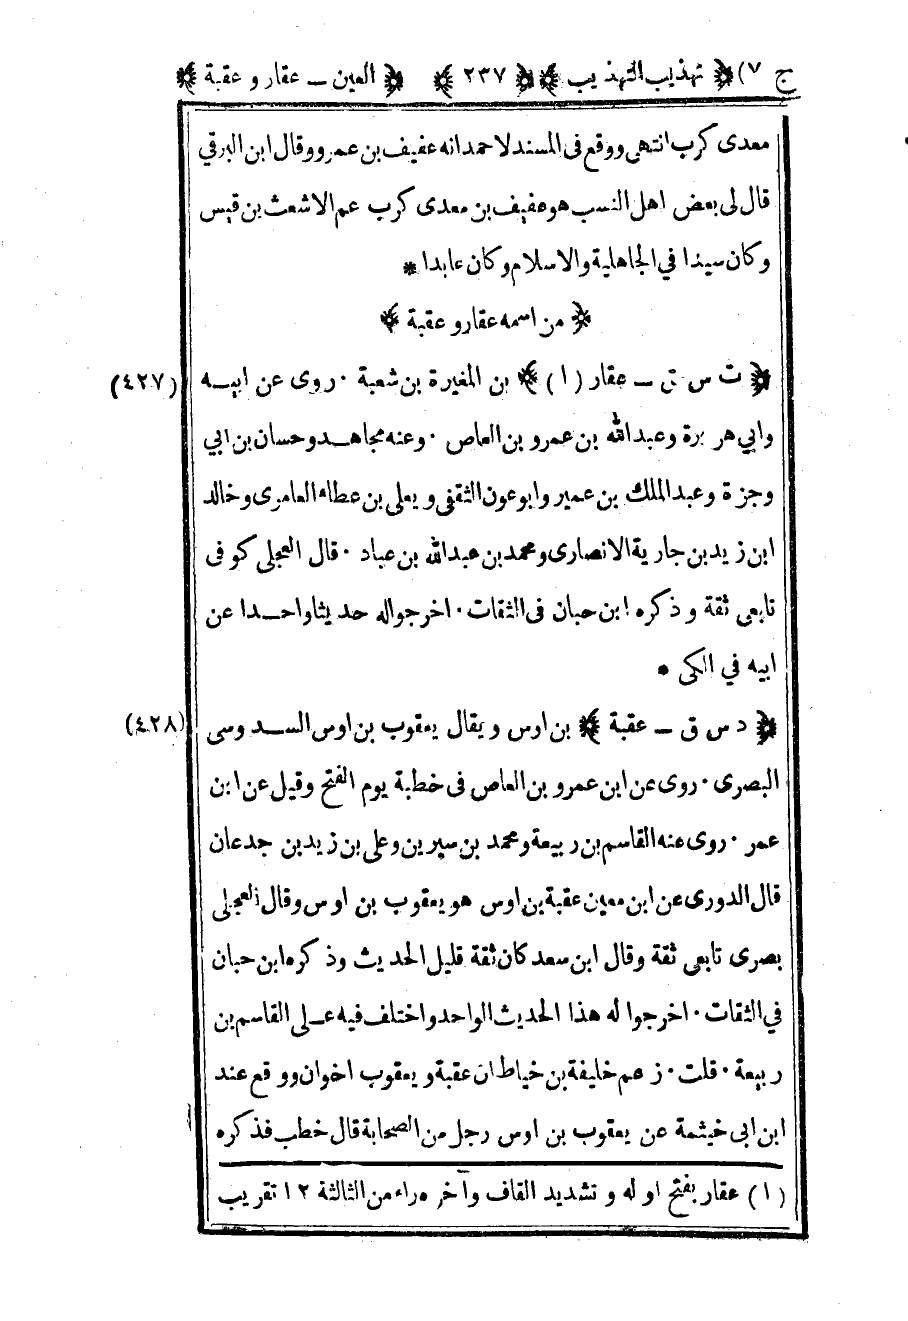 ج ٧) ﴿ تهذيب التهذيب ﴾ ﴿ ٢٣٧ ﴾ ﴿ العين ــ عقار و عقبة ﴾
معدى كرب انتهى ووقع فى المسند لاحمد انه عفيف بن عمرو وقال ابن البرقي
قال لى بعض اهل النسب هو عفيف بن معدى كرب عم الاشعث بن قيس
وكان سيدا في الجاهلية والاسلام وكان عابدا *
﴿ من اسمه عقار و عقبة ﴾
(٤٢٧) ﴿ ت س ق ــ عقار (١) ﴾ بن المغيرة بن شعبة ٠ روى عن ابيــه
وابي هريرة وعبد الله بن عمرو بن العاص ٠ وعنه مجاهــد وحسان بن ابي
وجزة وعبد الملك بن عمير وابو عون الثقفى ويعلى بن عطاء العامرى وخالد
ابن زيد بن جارية الانصارى ومحمد بن عبد الله بن عباد ٠ قال العجلى كوفى
تابعى ثقة وذكره ابن حبان فى الثقات ٠ اخرجوا له حديثا واحــدا عن
ابيه في الكى *
(٤٢٨) ﴿ د س ق ــ عقبة ﴾ بن اوس ويقال يعقوب بن اوس الســدوسى
البصرى ٠ روى عن ابن عمرو بن العاص فى خطبة يوم الفتح وقيل عن ابن
عمر ٠ روى عنه القاسم بن ربيعة ومحمد بن سيرين وعلى بن زيد بن جدعان
قال الدورى عن ابن معين عقبة بن اوس هو يعقوب بن اوس وقال العجلى
بصرى تابعى ثقة وقال ابن سعد كان ثقة قليل الحديث وذكره ابن حبان
في الثقات ٠ اخرجوا له هذا الحديث الواحد واختلف فيه عــلى القاسم بن
ربيعة ٠ قلت ٠ زعم خليفة بن خياط ان عقبة ويعقوب اخوان ووقع عند
ابن ابى خيثمة عن يعقوب بن اوس رجل من الصحابة قال خطب فذكره
(١) عقار بفتح اوله وتشديد القاف وآخره راء من الثالثة ١٢ تقريب